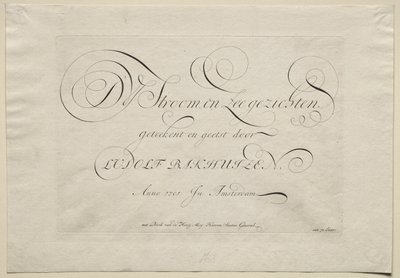 D'Y Stroom, en Zee gezichten.
Geteekent en geetst door
LUDOLF BAKHUIZEN.
Anno 1701 In Amsterdam
met Privil: van de Hoog: Mog: Heeren Staaten Generael.
out 71 Iaar.